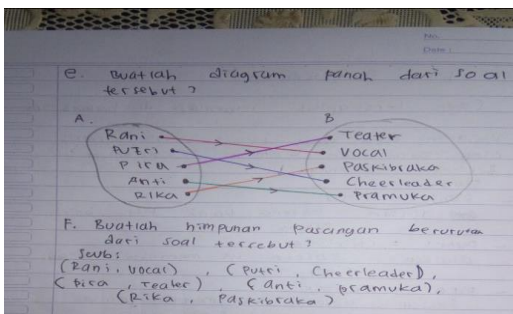 No.
Date :
e. Buatlah diagram panah dari soal
tersebut ?
A. B
Rani Teater
Putri Vocal
Pira Paskibraka
Anti Cheerleader
Rika Pramuka
F. Buatlah himpunan pasangan berurutan
dari soal tersebut ?
Jwb:
(Rani, Vocal) , (Putri , Cheerleader),
(Pira , Teater) , (anti , pramuka),
(Rika , Paskibraka)